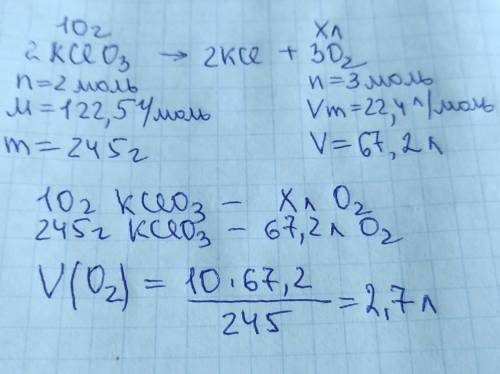 10г Xл
2KClO₃ → 2KCl + 3O₂
n=2моль n=3моль
M=122,5г/моль Vm=22,4л/моль
m=245г V=67,2л
10г KClO₃ – Xл O₂
245г KClO₃ – 67,2л O₂
V(O₂) = 10·67,2 / 245 = 2,7л